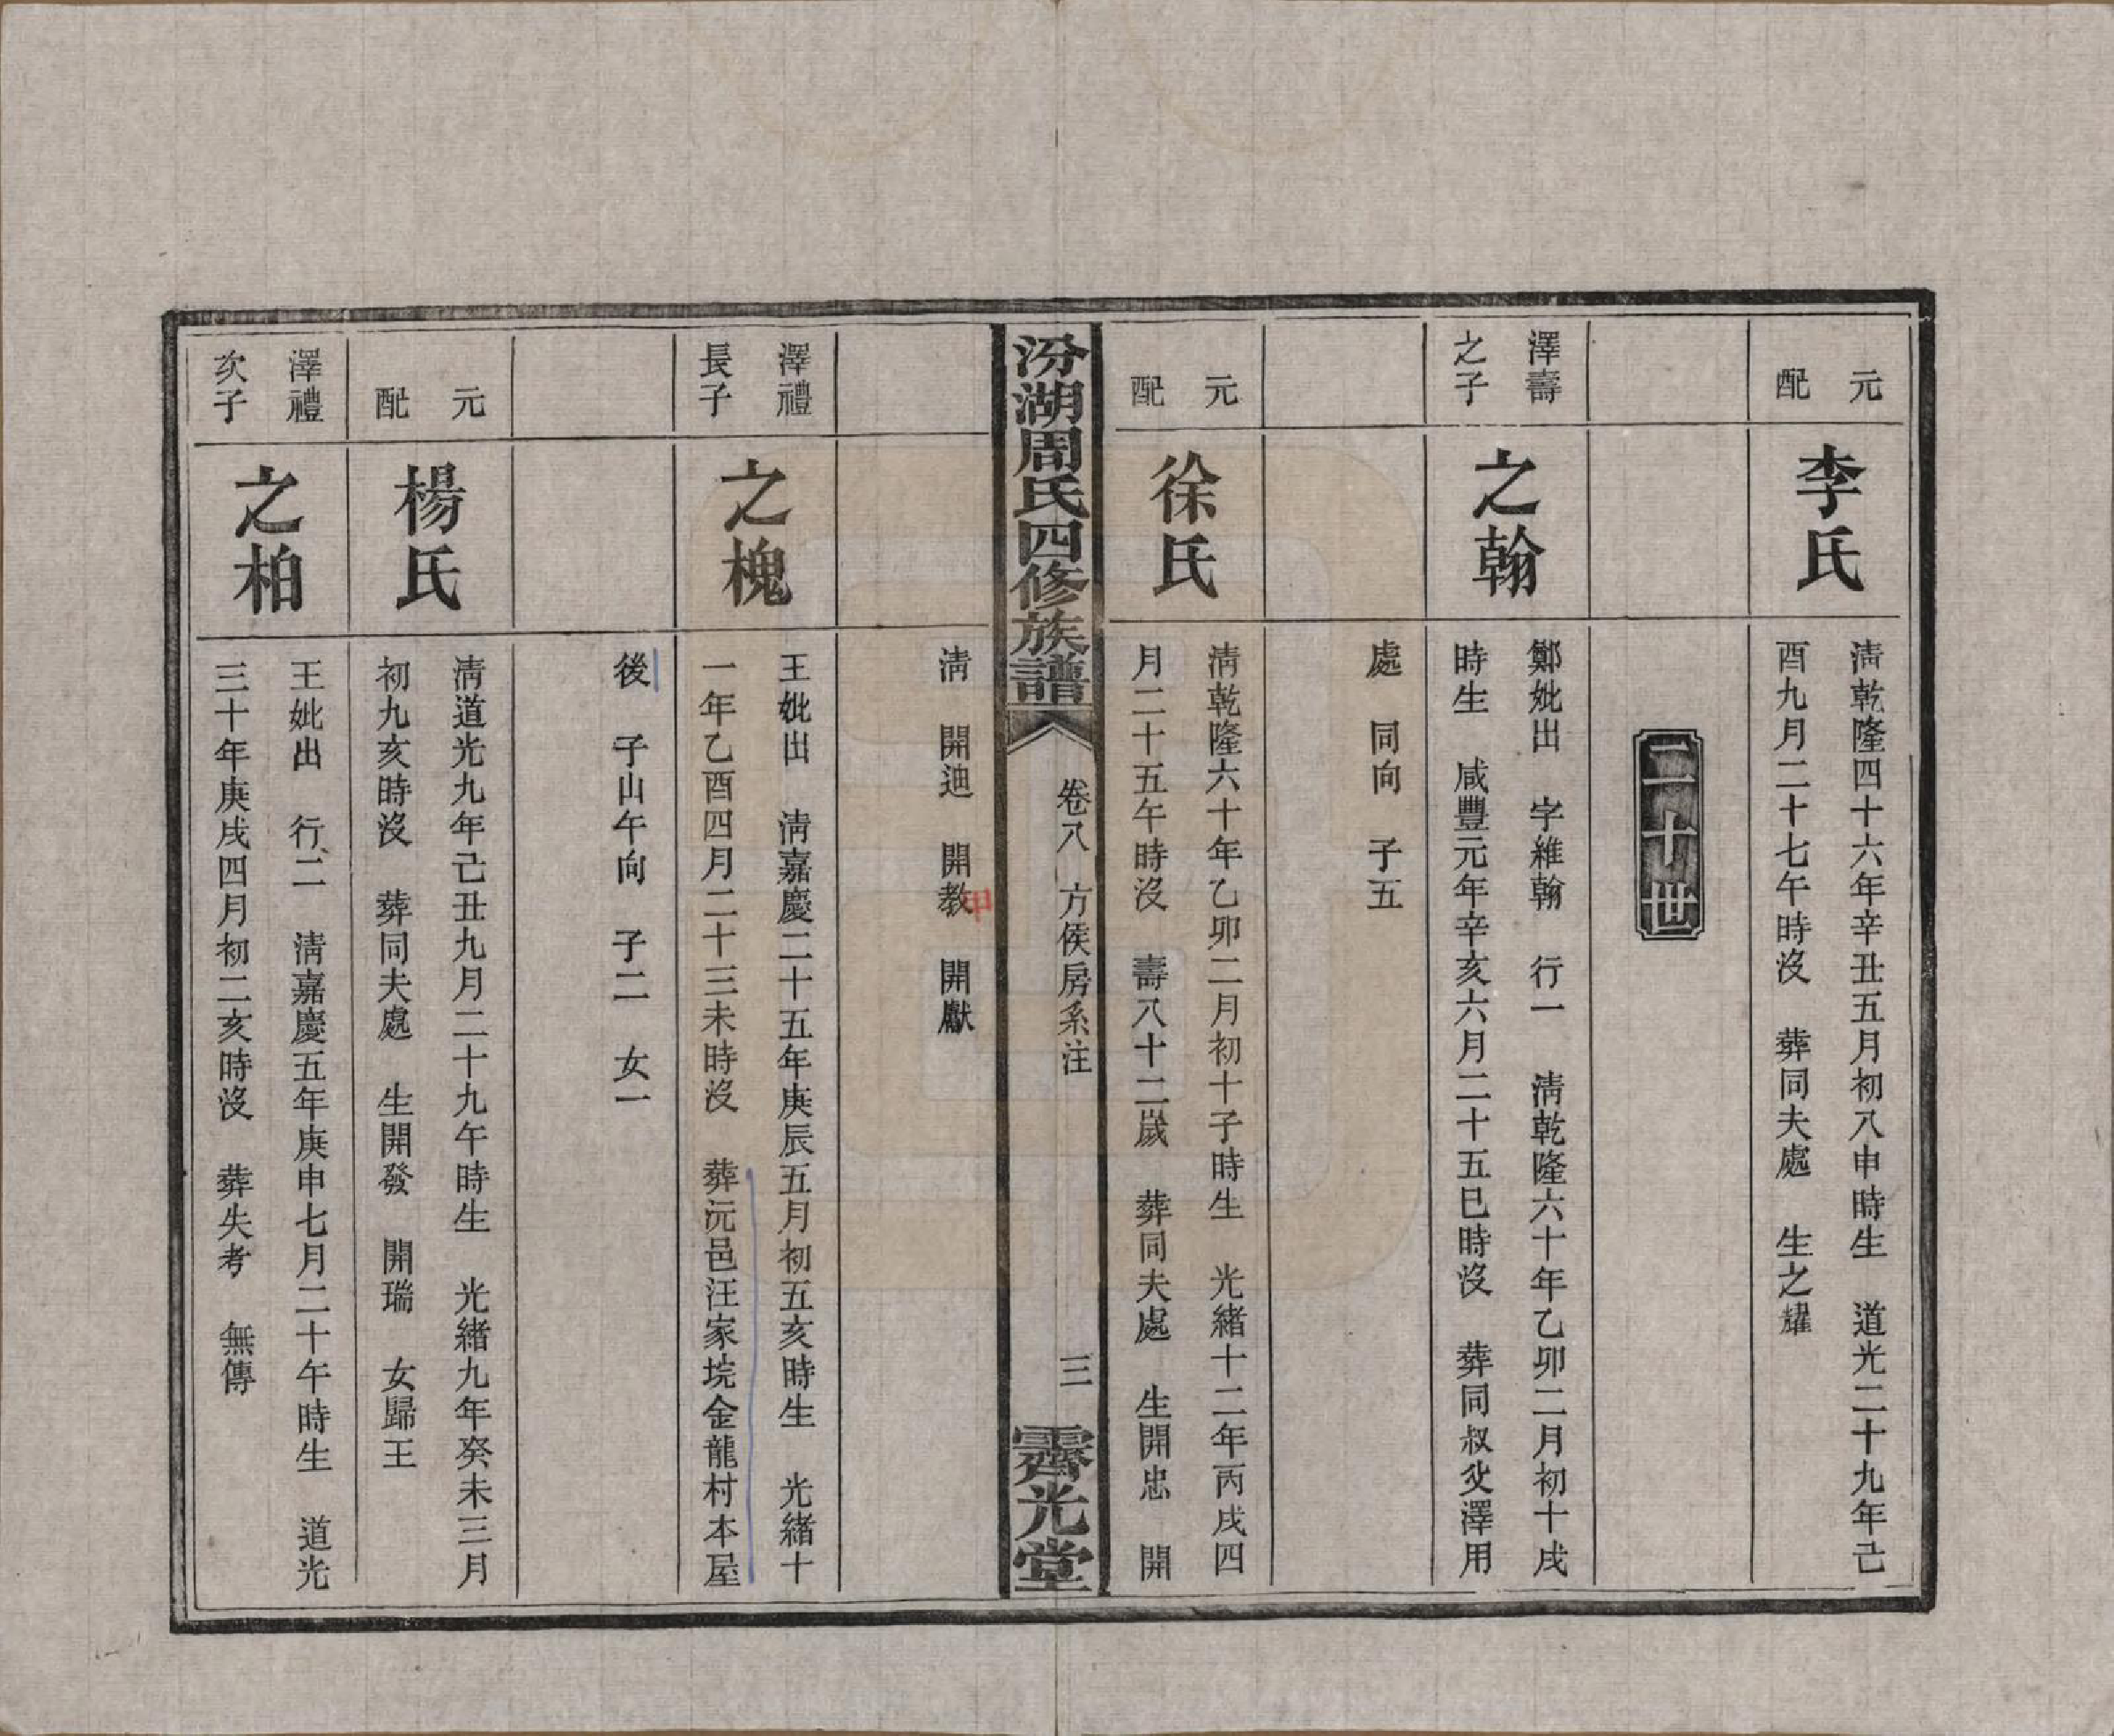 元
配
李氏
淸乾隆四十六年辛丑五月初八申時生　道光二十九年己
酉九月二十七午時沒　葬同夫處　生之耀
二十世
澤壽
之子
之翰
鄭妣出　字維翰　行一　淸乾隆六十年乙卯二月初十戌
時生　咸豐元年辛亥六月二十五巳時沒　葬同叔父澤用
處　同向　子五
元
配
徐氏
淸乾隆六十年乙卯二月初十子時生　光緒十二年丙戌四
月二十五午時沒　壽八十二歲　葬同夫處　生開忠　開
汾湖周氏四修族譜
卷八　方侯房系注
三
霽光堂
淸　開迪　開教　開獻
甲
澤禮
長子
之槐
王妣出　淸嘉慶二十五年庚辰五月初五亥時生　光緒十
一年乙酉四月二十三未時沒　葬沅邑汪家垸金龍村本屋
後　子山午向　子二　女一
元
配
楊氏
淸道光九年己丑九月二十九午時生　光緒九年癸未三月
初九亥時沒　葬同夫處　生開發　開瑞　女歸王
澤禮
次子
之柏
王妣出　行二　淸嘉慶五年庚申七月二十午時生　道光
三十年庚戌四月初二亥時沒　葬失考　無傳